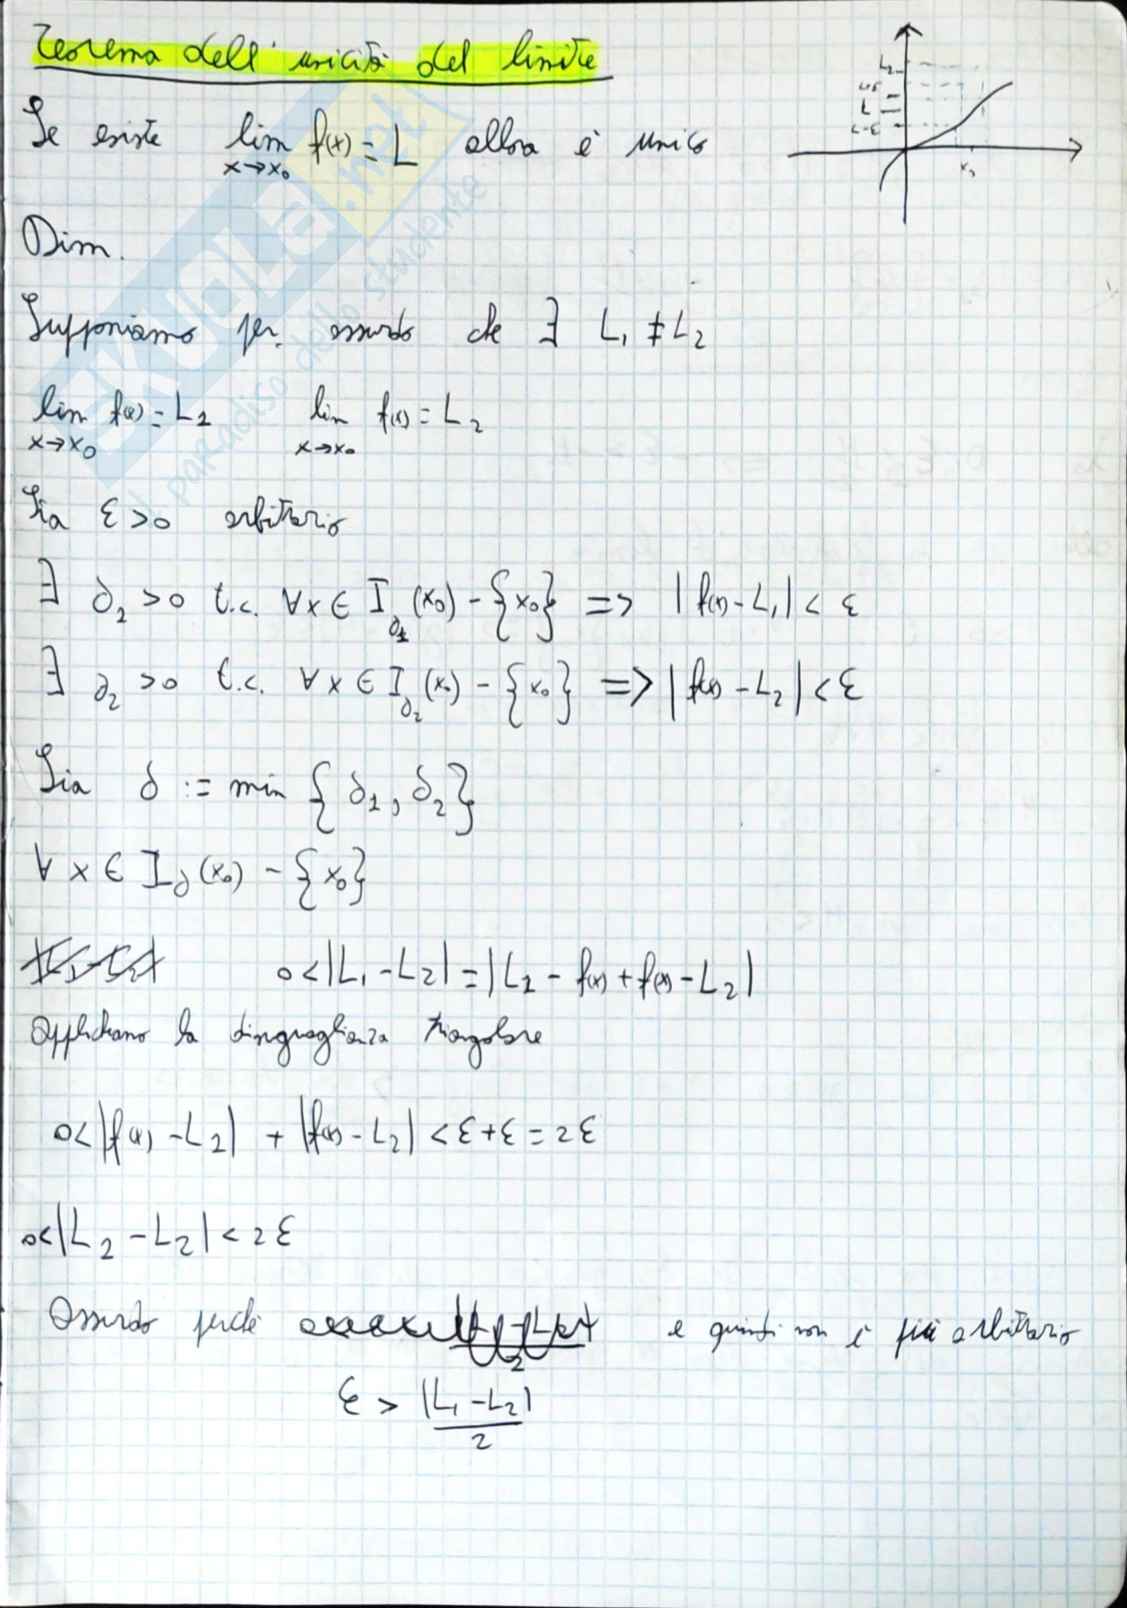 Teorema dell'unicità del limite
Se esiste lim f(x) = L allora è unico
x→x₀
L₂
L+ε
L
L-ε
x₀
Dim.
Supponiamo per assurdo che ∃ L₁ ≠ L₂
lim f(x) = L₁ lim f(x) = L₂
x→x₀ x→x₀
Sia ε>0 arbitrario
∃ δ₁ >0 t.c. ∀x ∈ I_δ₁(x₀) - {x₀} => |f(x) - L₁| < ε
∃ δ₂ >0 t.c. ∀x ∈ I_δ₂(x₀) - {x₀} => |f(x) - L₂| < ε
Sia δ := min {δ₁, δ₂}
∀ x ∈ I_δ(x₀) - {x₀}
0<|L₁ - L₂| = |L₁ - f(x) + f(x) - L₂|
Applichiamo la disuguaglianza triangolare
0<|f(x) - L₁| + |f(x) - L₂| < ε+ε = 2ε
0<|L₁ - L₂| < 2ε
Assurdo perché e quindi non è più arbitrario
ε > |L₁ - L₂|
2
SKUOLA.net
il paradiso dello studente